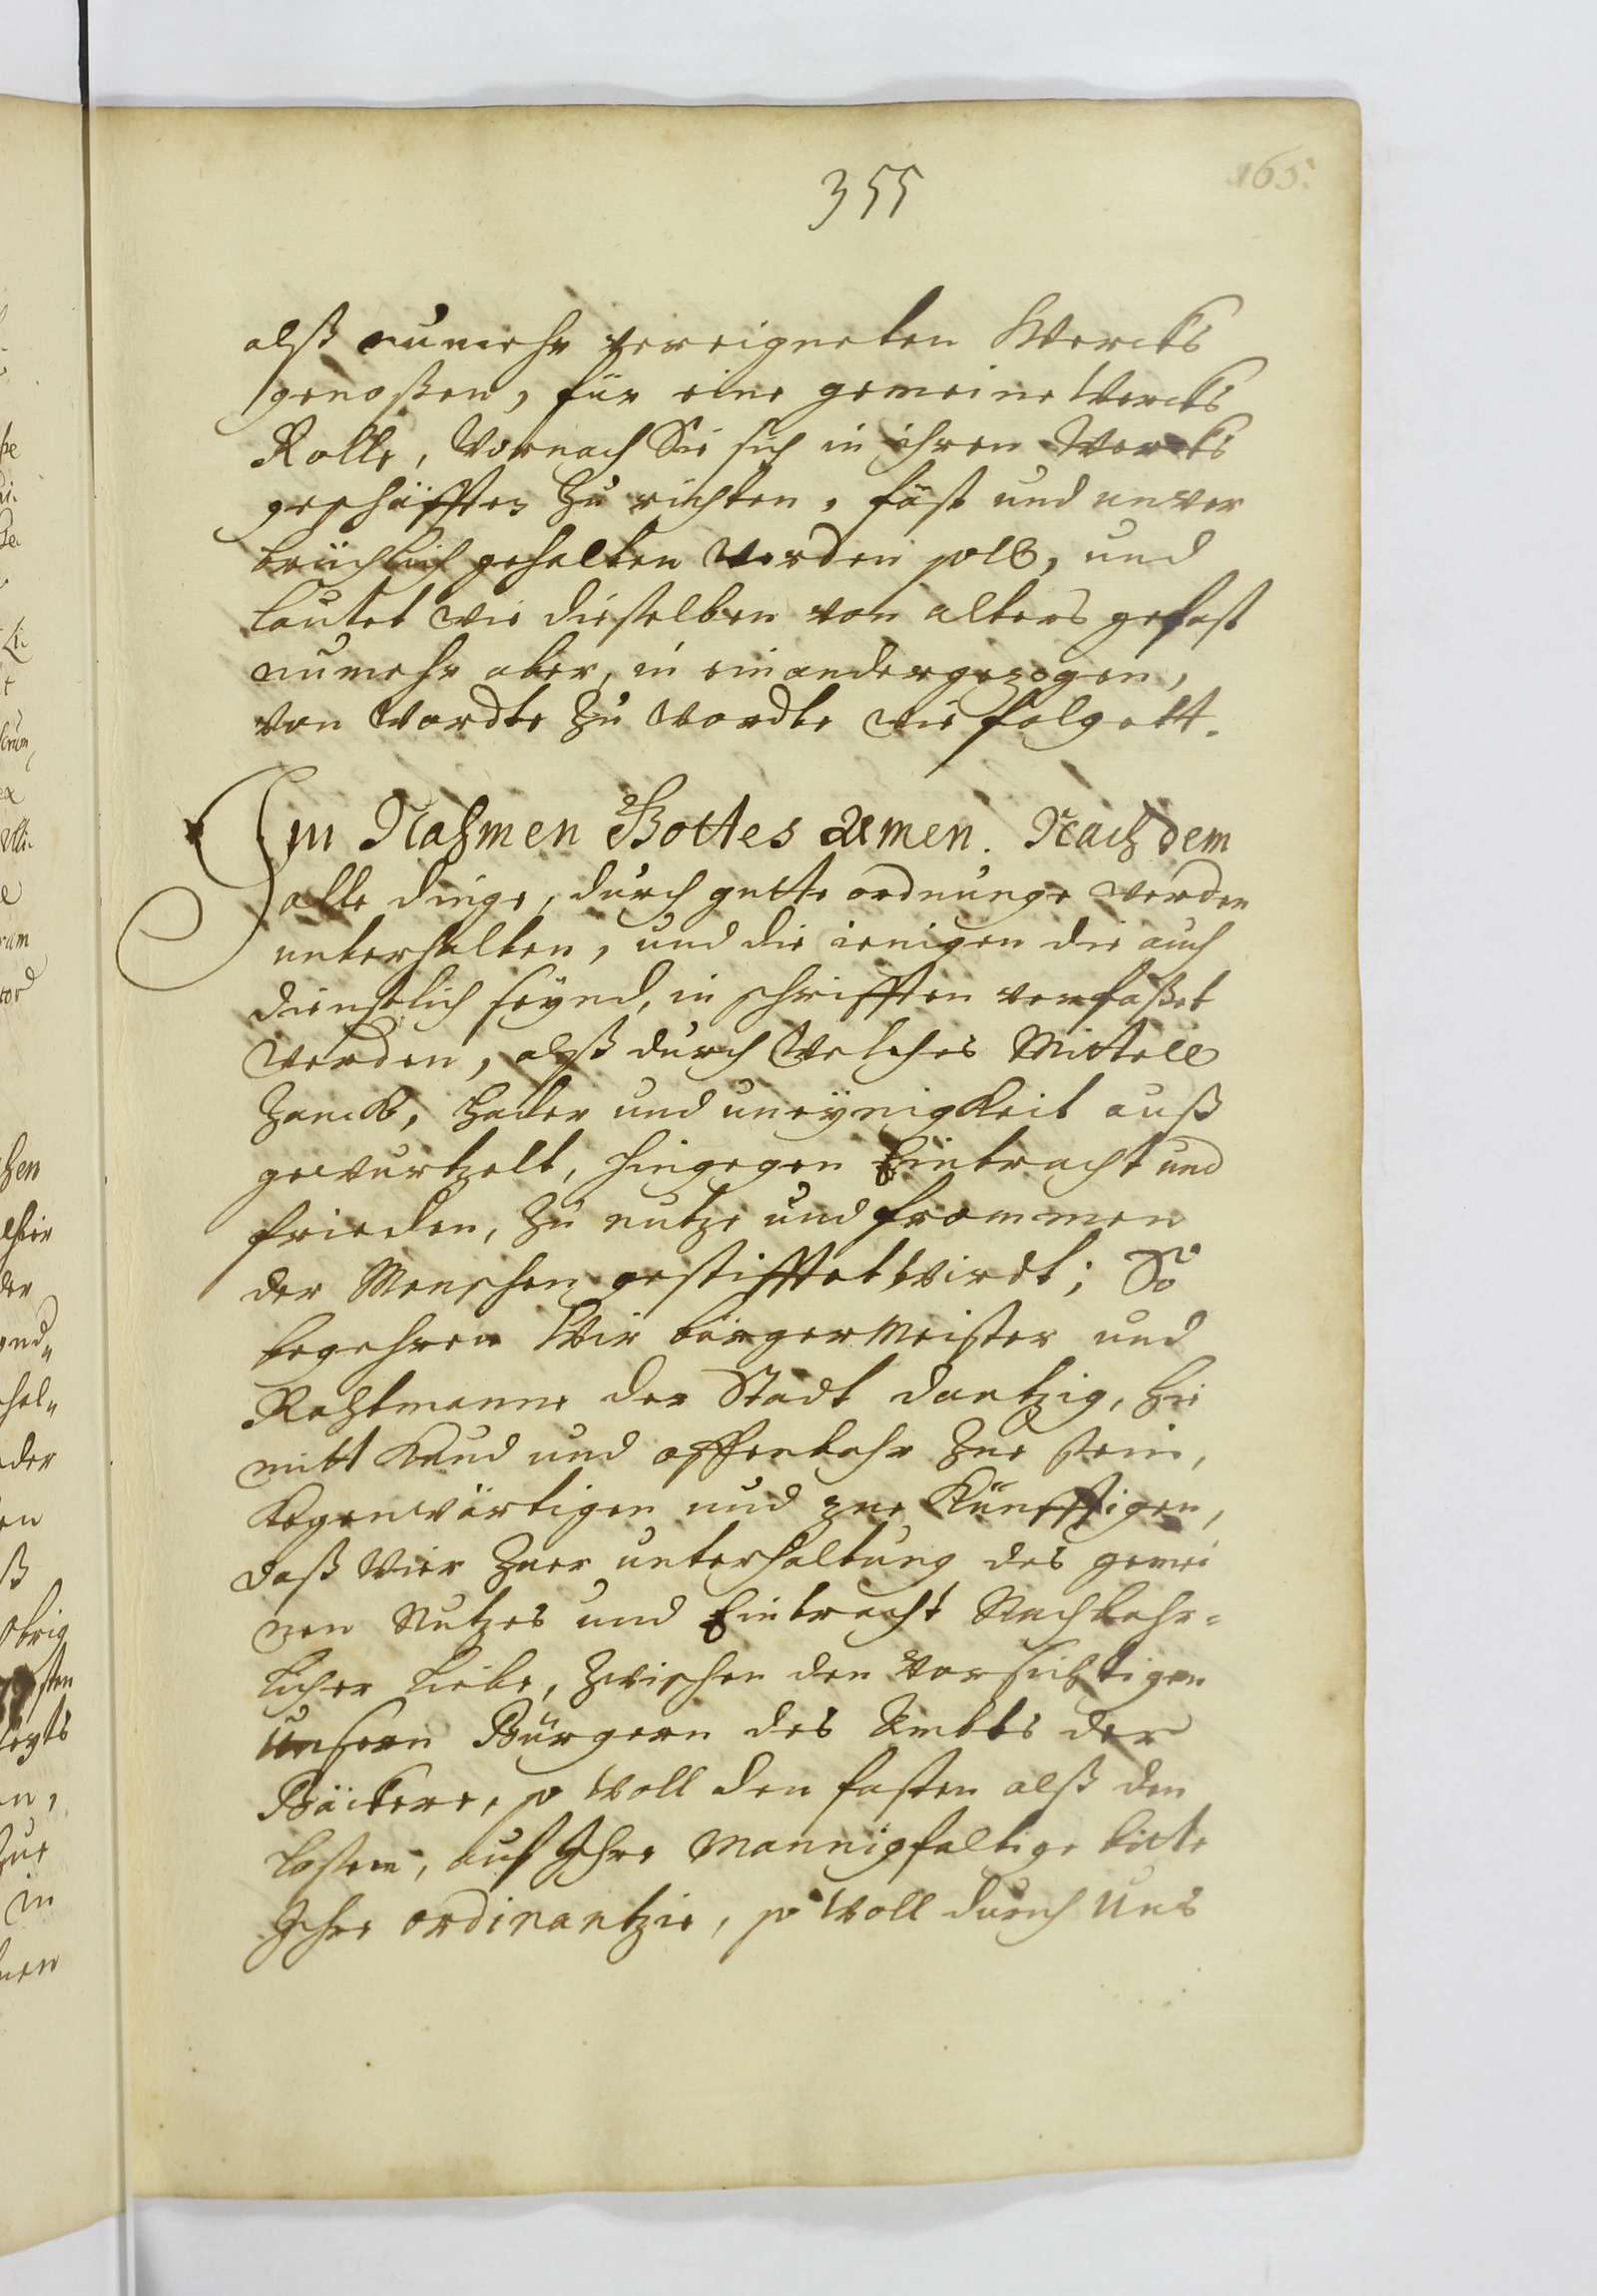 355
165.
alß nunmehr vereigneten Wercks
genoßen, für eine gemeine Wercks
Rolle, Wornach Sie sich in ihren Wercks
geschäfften zu richten, fäst und unver
brüchlich gehalten werden soll, und
lautet wie dieselben von alters gefast
numehr aber, in einandergezogen,
von Wordte zu Wordte wie folgett.
Im Nahmen Gottes Amen. Nachdem
alle dinge, durch gutte ordnunge werden
unterhalten, und die ienigen die auch
dienstlich seynd, in schrifften verfaßet
werden, alß durch Welches Mittell
Zanck, Hader und uneynigkeit auß
gewurtzelt, hingegen Eintracht und
frieden, zu nutze und frommen
der Menschen gestifftet wirdt; So
begehren Wir bürgermeister und
Rahtmanne der Stadt dantzig, hie
mitt Kund und offenbahr zue sein,
Kegenwärtigen und zue Künfftigen,
daß Wier zuer unterhaltung des gemei
nen Nutzes und Eintracht Nachbahr=
licher liebe, zwischen den Vorsichtigen
Unsern Bürgern des Ambts der
Bäckere, so Woll den fasten alß den
losen, auf Ihre Mannigfaltige bitte
Ihre ordinantzie, so Woll durch Uns